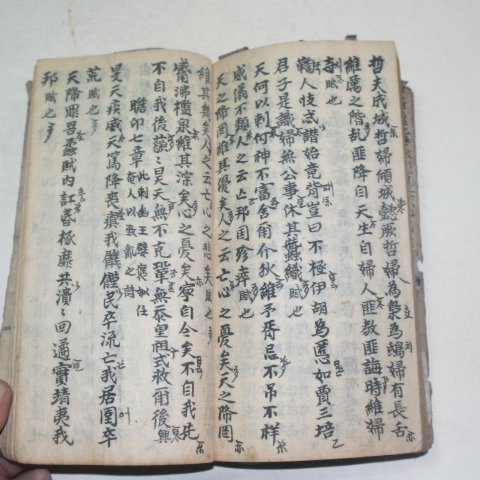 哲夫成城哲婦傾城懿厥哲婦為梟為鴟婦有長舌
維厲之階亂匪降自天生自婦人匪教匪誨時維婦
寺賦也
鞫人忮忒譖始竟背豈曰不極伊胡為慝如賈三倍
君子是識婦無公事休其蠶織賦也
天何以刺何神不富舍爾介狄維予胥忌不吊不祥
威儀不類人之云亡邦國殄瘁賦也
天之降罔維其優矣人之云亡心之憂矣天之降罔
維其幾矣人之云亡心之悲矣賦也
觱沸檻泉維其深矣心之憂矣寧自今矣不自我先
不自我後藐藐昊天無不克鞏無忝皇祖式救爾後興
瞻卬七章此刺幽王嬖褒姒任奄人以致亂之詩
旻天疾威天篤降喪瘨我饑饉民卒流亡我居圉卒
荒賦也
天降罪罟蟊賊內訌昏椓靡共潰潰回遹實靖夷我
邦賦也